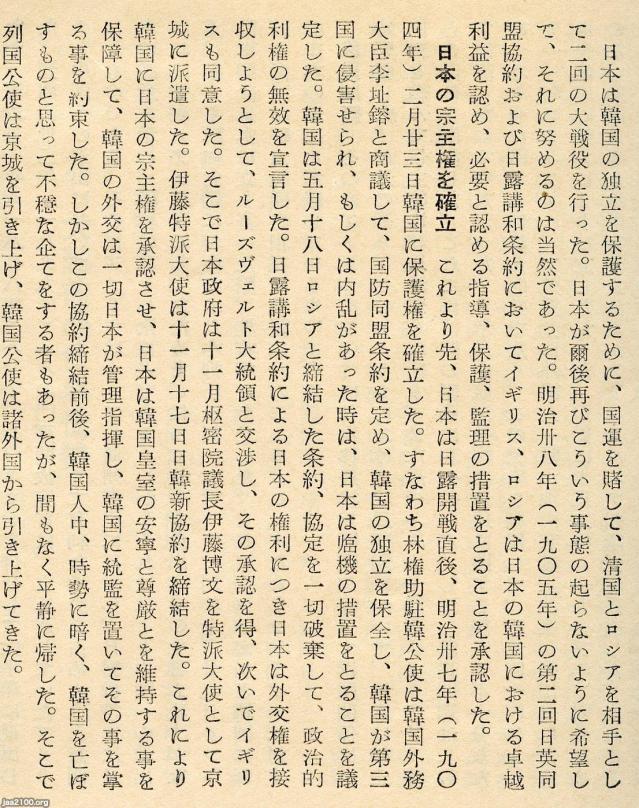 日本は韓国の独立を保護するために、国運を賭して、清国とロシアを相手とし
て二回の大戦役を行った。日本が爾後再びこういう事態の起らないように希望し
て、それに努めるのは当然であった。明治卅八年（一九〇五年）の第二回日英同
盟協約および日露講和条約においてイギリス、ロシアは日本の韓国における卓越
利益を認め、必要と認める指導、保護、監理の措置をとることを承認した。
日本の宗主権を確立　これより先、日本は日露開戦直後、明治卅七年（一九〇
四年）二月廿三日韓国に保護権を確立した。すなわち林権助駐韓公使は韓国外務
大臣李址鎔と商議して、国防同盟条約を定め、韓国の独立を保全し、韓国が第三
国に侵害せられ、もしくは内乱があった時は、日本は臨機の措置をとることを議
定した。韓国は五月十八日ロシアと締結した条約、協定を一切破棄して、政治的
利権の無効を宣言した。日露講和条約による日本の権利につき日本は外交権を接
収しようとして、ルーズヴェルト大統領と交渉し、その承認を得、次いでイギリ
スも同意した。そこで日本政府は十一月枢密院議長伊藤博文を特派大使として京
城に派遣した。伊藤特派大使は十一月十七日日韓新協約を締結した。これにより
韓国に日本の宗主権を承認させ、日本は韓国皇室の安寧と尊厳とを維持する事を
保障して、韓国の外交は一切日本が管理指揮し、韓国に統監を置いてその事を掌
る事を約束した。しかしこの協約締結前後、韓国人中、時勢に暗く、韓国を亡ぼ
すものと思って不穏な企てをする者もあったが、間もなく平静に帰した。そこで
列国公使は京城を引き上げ、韓国公使は諸外国から引き上げてきた。
jaa2100.org